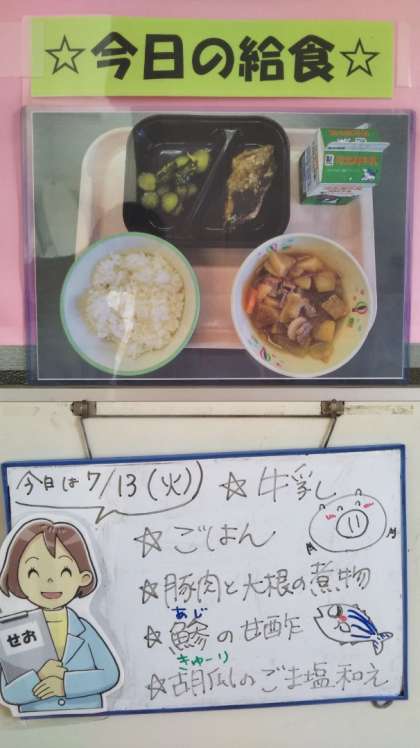 ☆今日の給食☆
今日は 7/13(火)
☆牛乳
☆ごはん
☆豚肉と大根の煮物
あじ
☆鯵の甘酢
きゅーり
☆胡瓜のごま塩和え
せお